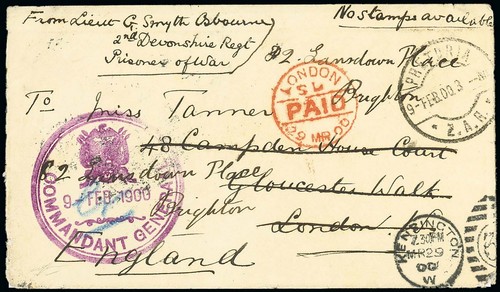 From Lieut G. Smyth Osbourne
2nd Devonshire Regt
Prisoner of War
No stamps available
82 Lansdown Place
Brighton
To Miss Tanner
48 Campden House Court
Gloucester Walk
London
82 Lansdown Place
Brighton
England
LONDON
PAID
29 MR 00
PRETORIA
9-FEB.00
Z.A.R.
COMMANDANT GENERAAL
9 - FEB 1900
KENSINGTON
7.30PM
MR 29
00
W